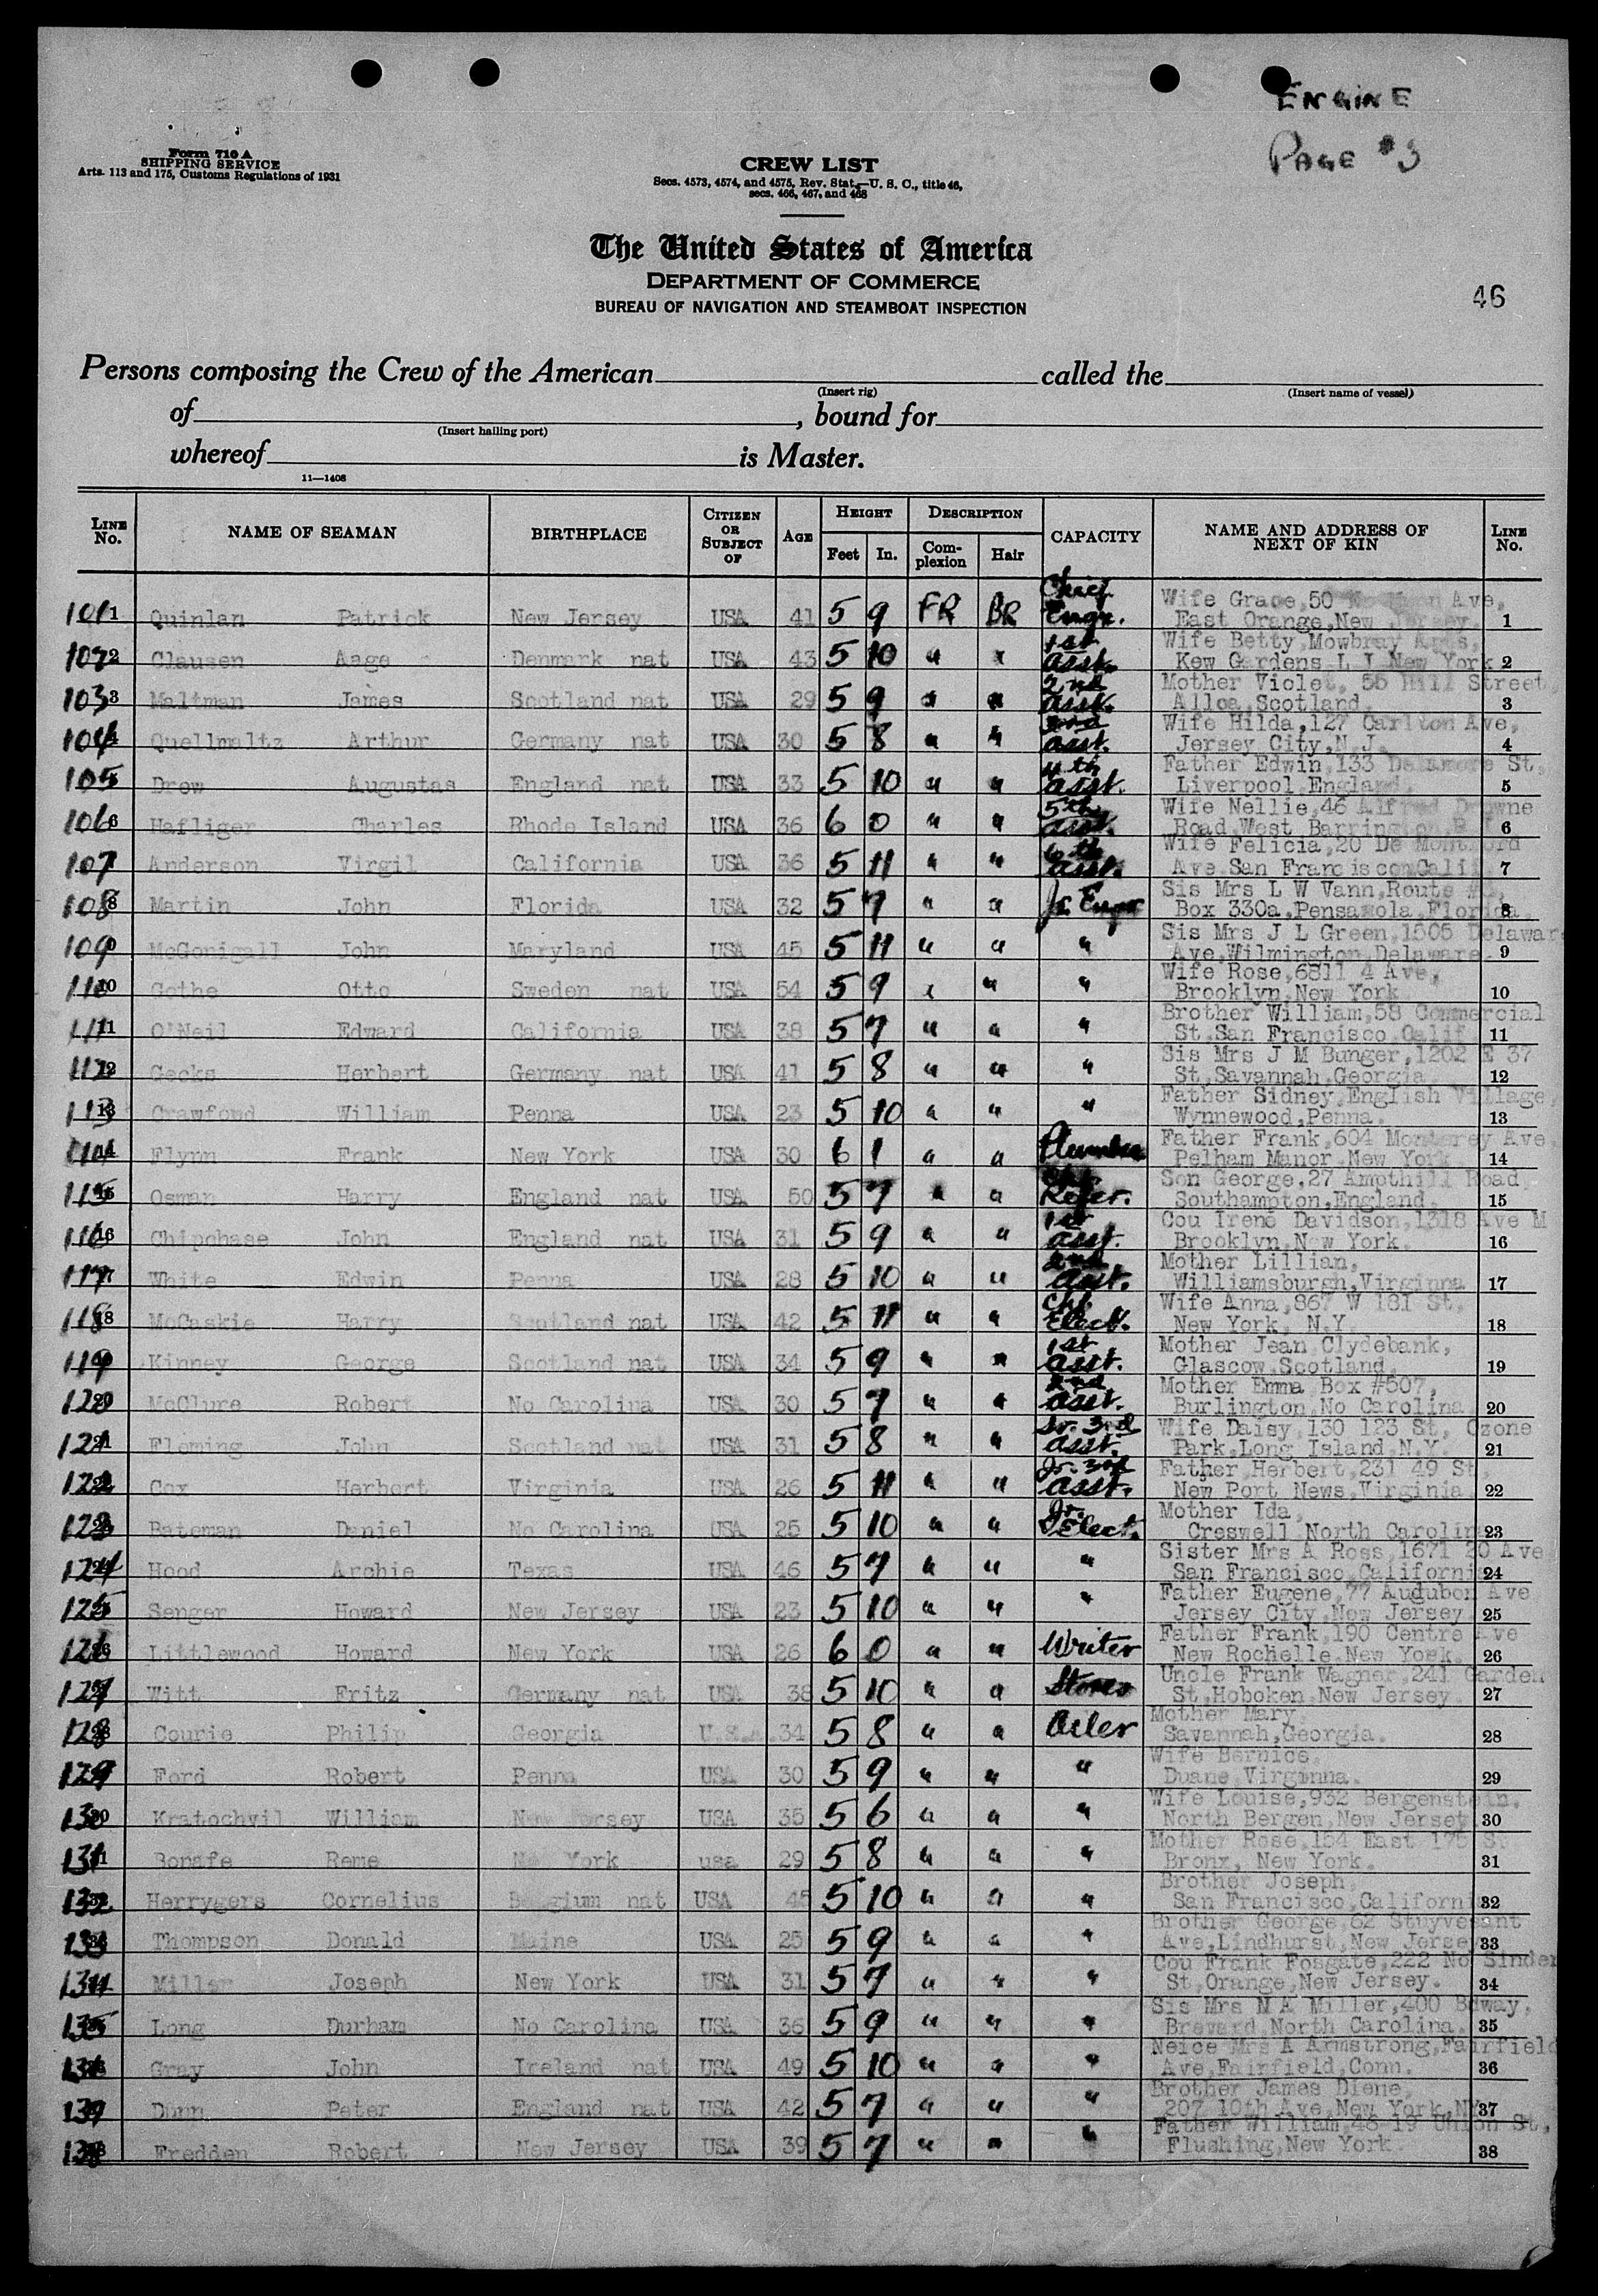 ENGINE
PAGE #3
Form 710 A
SHIPPING SERVICE
Arts. 113 and 175, Customs Regulations of 1931
CREW LIST
Secs. 4573, 4574, and 4575, Rev. Stat.—U. S. C., title 46,
secs. 466, 467, and 468
The United States of America
DEPARTMENT OF COMMERCE
BUREAU OF NAVIGATION AND STEAMBOAT INSPECTION
46
Persons composing the Crew of the American called the
(Insert rig) (Insert name of vessel)
of , bound for
(Insert hailing port)
whereof is Master.
11—1408
LINE No. NAME OF SEAMAN BIRTHPLACE CITIZEN OR SUBJECT OF AGE HEIGHT Feet In. DESCRIPTION Complexion Hair CAPACITY NAME AND ADDRESS OF NEXT OF KIN LINE No.
101 1 Quinlan Patrick New Jersey USA 41 5 9 FR BR Chief Engr. Wife Grace,50 Ave, East Orange,New Jersey. 1
102 2 Clausen Aage Denmark nat USA 43 5 10 " " 1st asst. Wife Betty Mowbray Apts, Kew Gardens L I New York 2
103 3 Maltman James Scotland nat USA 29 5 9 " " 2nd asst. Mother Violet, 55 Hill Street, Alloa,Scotland. 3
104 4 Quellmaltz Arthur Germany nat USA 30 5 8 " " 3rd asst. Wife Hilda,127 Carlton Ave, Jersey City,N.J. 4
105 5 Drew Augustas England nat USA 33 5 10 " " 4th asst. Father Edwin,133 St, Liverpool,England. 5
106 6 Hafliger Charles Rhode Island USA 36 6 0 " " 5th asst. Wife Nellie,46 Alfred Drowne Road,West Barrington,R I 6
107 7 Anderson Virgil California USA 36 5 11 " " 6th asst. Wife Felicia,20 De Montford Ave.San Francisco,Calif 7
108 8 Martin John Florida USA 32 5 7 " " Jr Engr Sis Mrs L W Vann,Route #1, Box 330a,Pensamola,Florida. 8
109 9 McGonigall John Maryland USA 45 5 11 " " " Sis Mrs J L Green,1505 Delaware Ave,Wilmington,Delaware. 9
110 10 Gothe Otto Sweden nat USA 54 5 9 " " " Wife Rose,6811 4 Ave, Brooklyn,New York 10
111 11 O'Neil Edward California USA 38 5 7 " " " Brother William,58 Commercial St.San Francisco Calif 11
112 12 Gecks Herbert Germany nat USA 41 5 8 " " " Sis Mrs J M Bunger,1202 E 37 St,Savannah,Georgia 12
113 13 Crawford William Penna USA 23 5 10 " " " Father Sidney,English Village, Wynnewood,Penna. 13
114 14 Flynn Frank New York USA 30 6 1 " " Plumber Father Frank,604 Monterey Ave. Pelham Manor New York 14
115 15 Osman Harry England nat USA 50 5 7 " " Chf. Refer. Son George,27 Ampthill Road, Southampton,England. 15
116 16 Chipchase John England nat USA 31 5 9 " " 1st asst. Cou Irene Davidson,1318 Ave M Brooklyn,New York. 16
117 17 White Edwin Penna USA 28 5 10 " " 2nd asst. Mother Lillian, Williamsburgh,Virginna 17
118 18 McCaskie Harry Scotland nat USA 42 5 11 " " Chf. Elect. Wife Anna,867 W 181 St, New York, N.Y. 18
119 19 Kinney George Scotland nat USA 34 5 9 " " 1st asst. Mother Jean Clydebank, Glascow,Scotland, 19
120 20 McClure Robert No Carolina USA 30 5 7 " " 2nd asst. Mother Emma Box #507, Burlington,No Carolina. 20
121 21 Fleming John Scotland nat USA 31 5 8 " " Sr. 3rd asst. Wife Daisy,130 123 St, Ozone Park,Long Island,N.Y. 21
122 22 Cox Herbert Virginia USA 26 5 11 " " Jr. 3rd asst. Father,Herbert,231 49 St, New Port News,Virginia 22
123 23 Bateman Daniel No Carolina USA 25 5 10 " " Jr. Elect. Mother Ida, Creswell North Carolina 23
124 24 Hood Archie Texas USA 46 5 7 " " " Sister Mrs A Ross,1671 20 Ave San Francisco,California 24
125 25 Senger Howard New Jersey USA 23 5 10 " " " Father Eugene,77 Audubon Ave Jersey City,New Jersey 25
126 26 Littlewood Howard New York USA 26 6 0 " " Writer Father Frank,190 Centre Ave New Rochelle,New York. 26
127 27 Witt Fritz Germany nat USA 38 5 10 " " Stores Uncle Frank Wagner,241 Garden St,Hoboken,New Jersey. 27
128 28 Courie Philip Georgia U.S.A. 34 5 8 " " Oiler Mother Mary, Savannah,Georgia. 28
129 29 Ford Robert Penna USA 30 5 9 " " " Wife Bernice, Duane,Virginna. 29
130 30 Kratochvil William New Jersey USA 35 5 6 " " " Wife Louise,932 Bergenstein. North Bergen,New Jersey 30
131 31 Bonafe Reme New York usa 29 5 8 " " " Mother Rose,154 East 175 St Bronx, New York. 31
132 32 Herrygers Cornelius Belgium nat USA 45 5 10 " " " Brother Joseph, San Francisco,California 32
133 33 Thompson Donald Maine USA 25 5 9 " " " Brother George,62 Stuyvesant Ave,Lindhurst,New Jersey 33
134 34 Miller Joseph New York USA 31 5 7 " " " Cou Frank Fosgate,222 No Sinder St,Orange,New Jersey. 34
135 35 Long Durham No Carolina USA 36 5 9 " " " Sis Mrs M A Miller,400 Bdway, Brevard North Carolina. 35
136 36 Gray John Ireland nat USA 49 5 10 " " " Neice Mrs A Armstrong,Fairfield Ave,Fairfield,Conn. 36
139 37 Dunn Peter England nat USA 42 5 7 " " " Brother James Diene, 207 10th Ave,New York,NY 37
138 38 Fredden Robert New Jersey USA 39 5 7 " " " Father William,46-19 Union St, Flushing,New York. 38